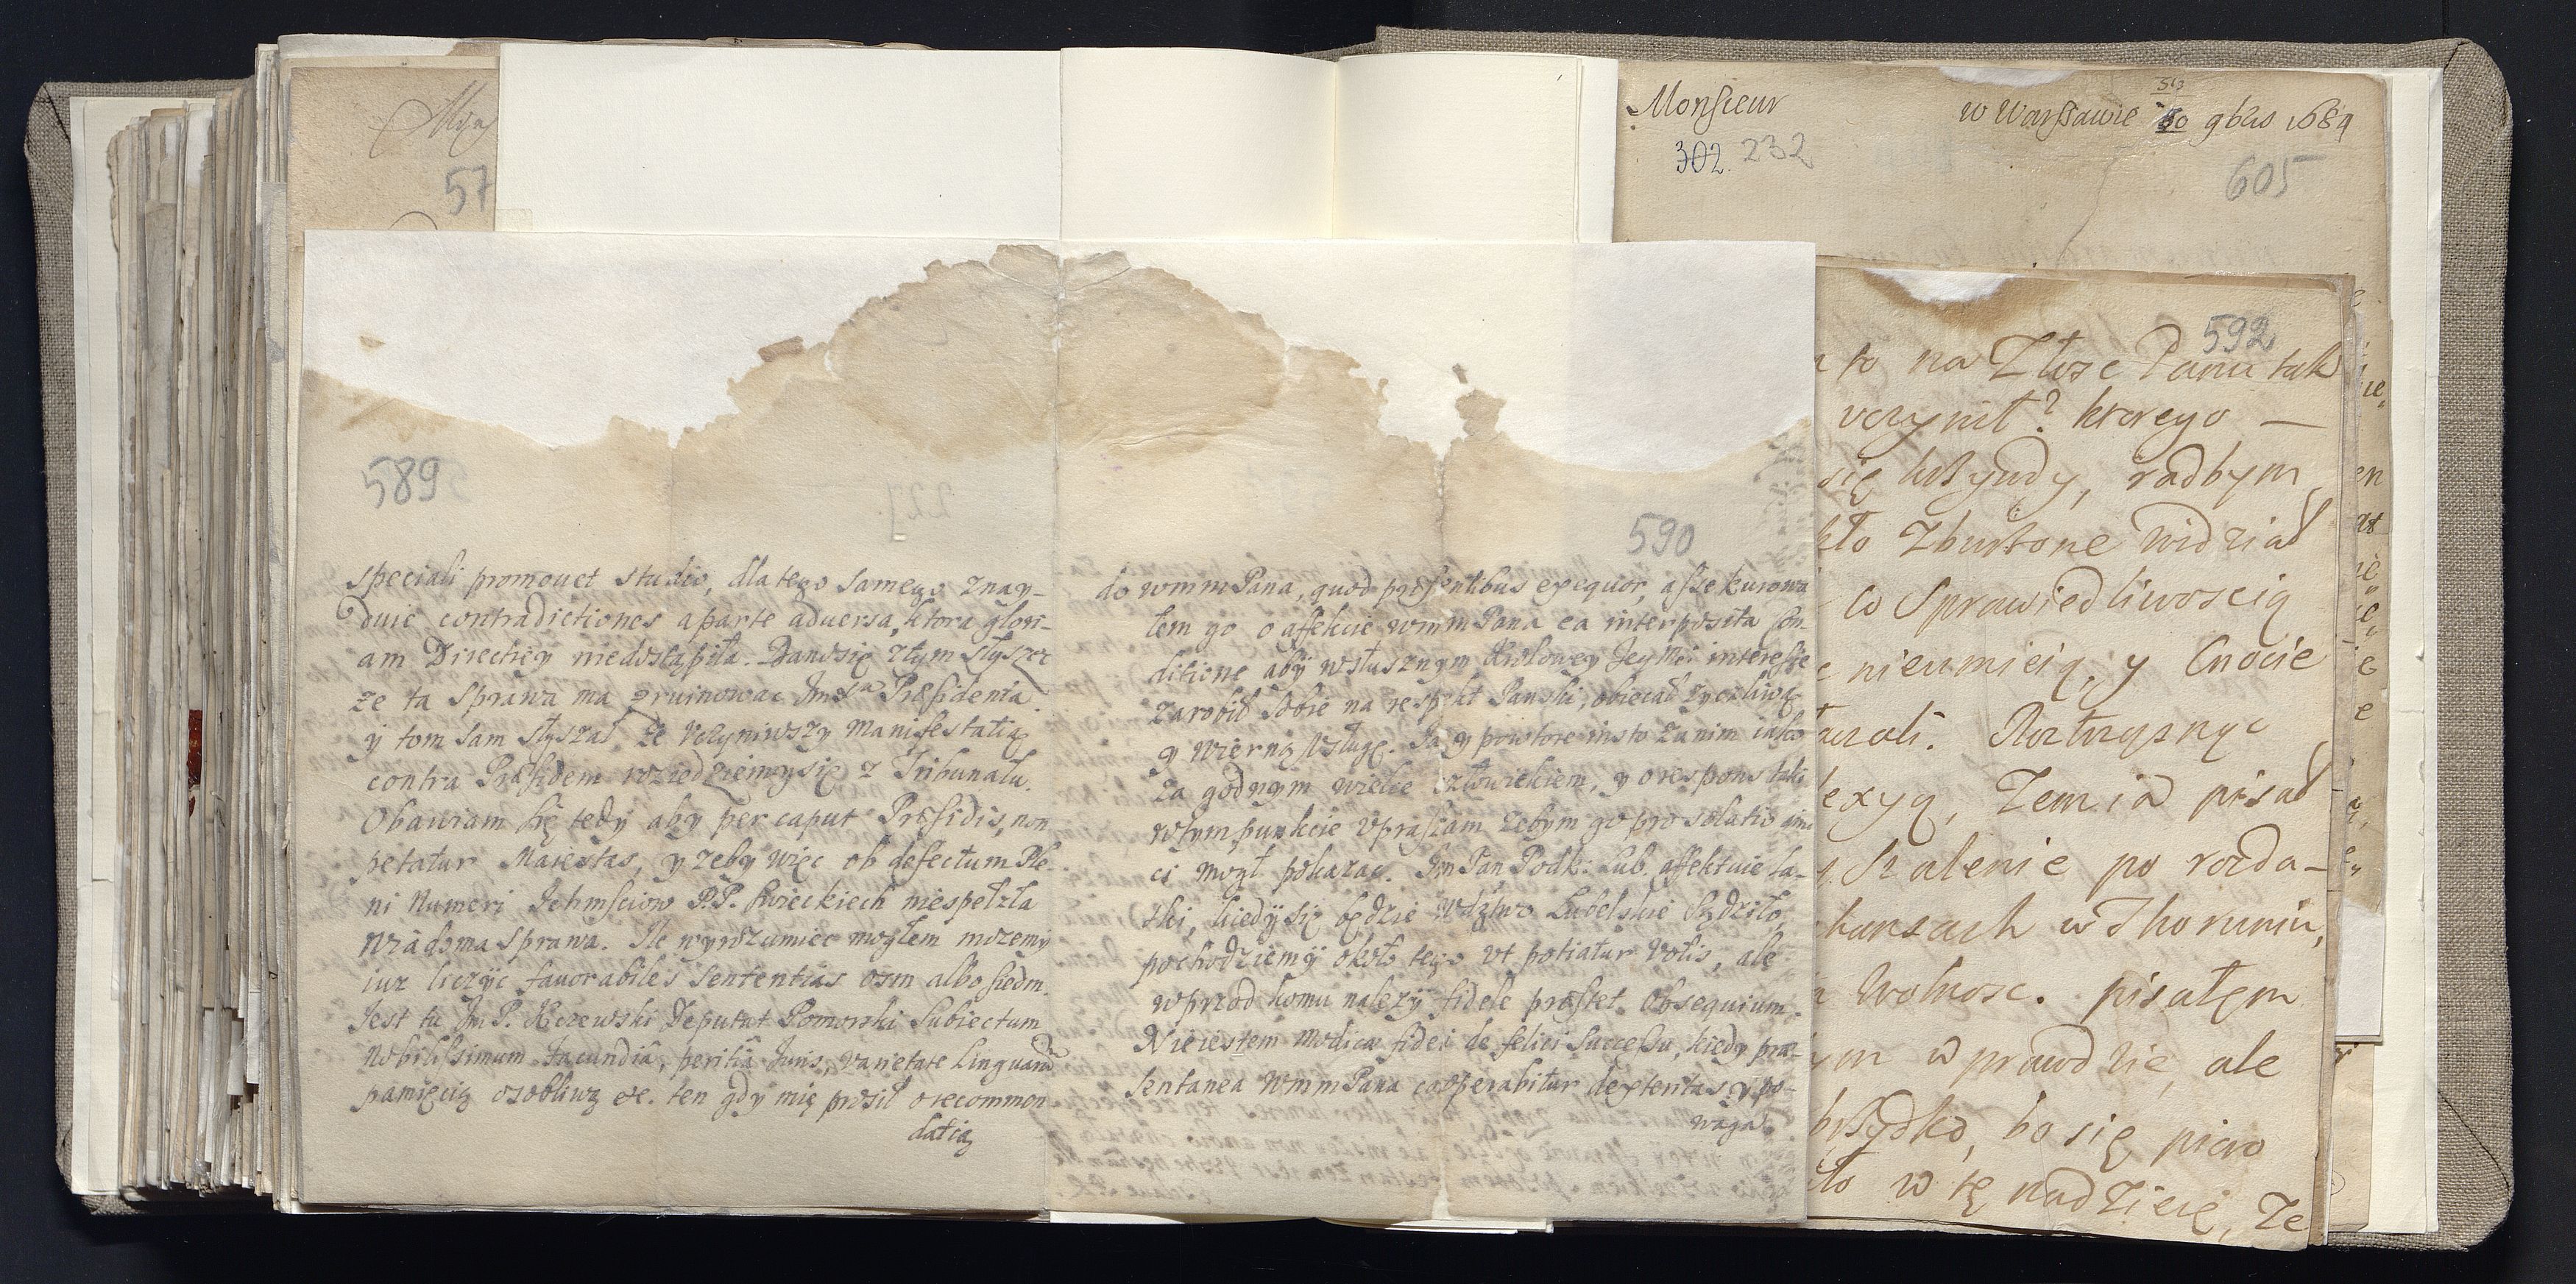 57
589
speciali promouet studio, dla tego samego znay-
duie contradictiones a parte aduersa, ktora glori-
am Directiey niedostąpiła. Dano się z tym słyszec
ze ta sprawa ma zruinowac Præsidenta.
y tom sam słyszał ze Vczyniwszy Manifestatią
contra Præsidem roziedziemy się z Tribunału.
Obawiam się tedy aby per caput Præsidis, non
petatur Maiestas, y zeby więc ob defectum Ple-
ni Numeri Ichmsciow P.P. Swieckich niespełzła
wiadoma sprawa. Ile wyrozumiec mogłem mozemy
iuz liczyc fauorabiles sententias osm albo siedm.
Jest tu Jm P. Kczewski Deputat Pomorski Subiectum
Nobilissimum facundiâ, peritiâ Juris, varietate Linguarũ
pamięcią osobliwą etc. ten gdy mię prosił o recommen-
datią
590
do wmm Pana, quod præsentibus exequor, assekurowa
łem go o affekcie wmm Pana ea interposita con-
ditione aby w słusznym Krolowey Jey Mci interessie
zarobił sobie na respekt Panski, obiecał zyczliwą
y wierną vsługę. Ja y powtore insto za nim iako
za godnym wielce człowiekiem, y o respons taki
w tym punkcie vpraszam zebym go pro solatio ami
ci mogł pokazac. Jm Pan Podk: Lub. affektuie La-
ski, kiedy się będzie Wdztwo Lubelskie sądziło,
pochodziemy około tego vt potiatur votis, ale
wprzod komu nalezy fidele præstet obsequium.
Nieiestem modicæ fidei de felici successu, kiedy præ-
sentanea wmm Pana cooperabitur dexteritas y po-
waga
Monsieur
w Warszawie 30 9bris 1689
302. 232
605
592
to na Złosc Panu tak
vczynił? ktorego —
się krzywdy, radbym
zburzone widział
co Sprawiedliwoscią
nieumieią, y Cnocie
Roztrzysnąc
Zem ia pisał
Szalenie po rozda-
w Thoruniu,
Wolnosc. pisałem
w prawdzie, ale
bo się piero
w tę nadzieię, Ze